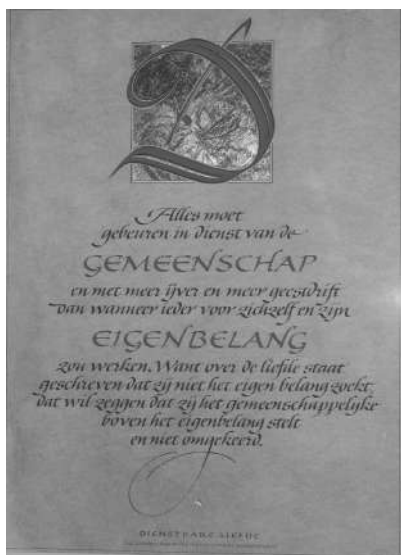 Alles moet
gebeuren in dienst van de
GEMEENSCHAP
en met meer ijver en meer geestdrift
dan wanneer ieder voor zichzelf en zijn
EIGENBELANG
zou werken. Want over de liefde staat
geschreven dat zij niet het eigen belang zoekt;
dat wil zeggen dat zij het gemeenschappelijke
boven het eigenbelang stelt
en niet omgekeerd.
DIENSTBARE LIEFDE